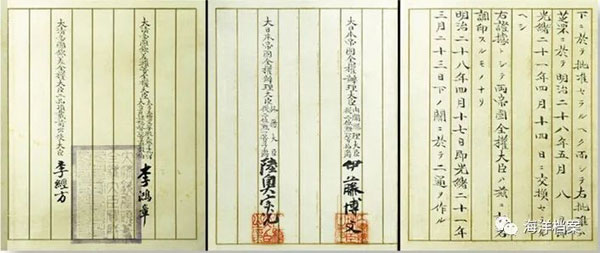 下ニ於テ批准セラルヘク而シテ右批准ハ
芝罘ニ於テ明治二十八年五月八日
光緒二十一年四月十四日ニ交換セラル
ヘシ
右證據トシテ兩帝國全權大臣ハ茲ニ記名
調印スルモノナリ
明治二十八年四月十七日即光緒二十一年
三月二十三日下ノ關ニ於テ二通ヲ作ル
大日本帝國全權辨理大臣內閣總理大臣 伊藤博文
大日本帝國全權辨理大臣外務大臣 陸奧宗光
大清帝國欽差頭等全權大臣 李鴻章
大清帝國欽差全權大臣二品頂戴前出使大臣 李經方
海洋档案